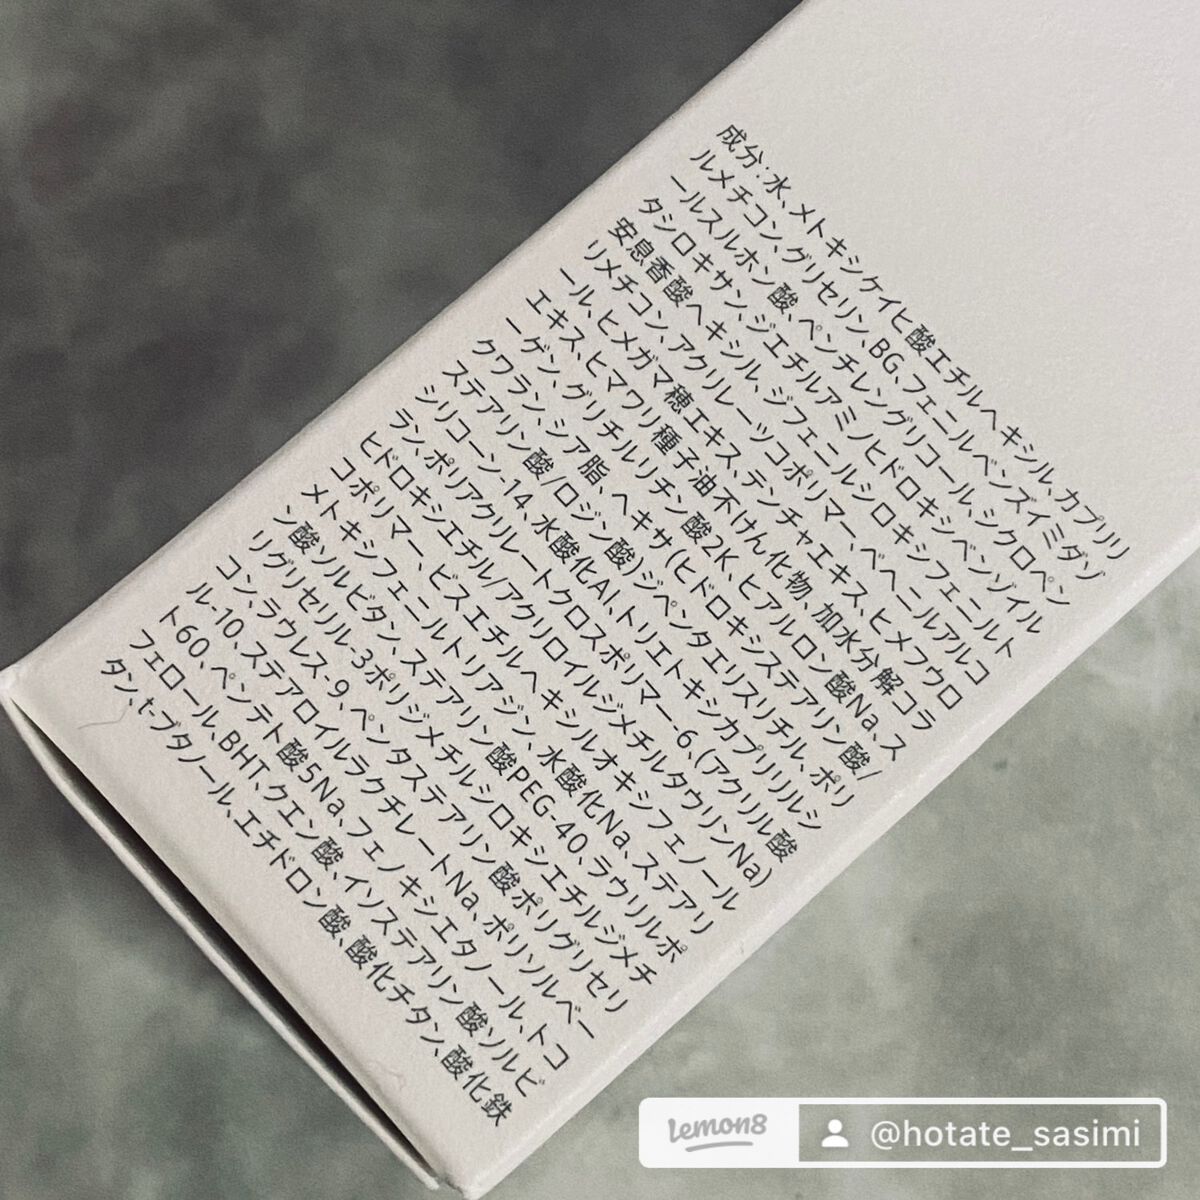 成分:水、メトキシケイヒ酸エチルヘキシル、カプリリ
ルメチコン、グリセリン、BG、フェニルベンズイミダゾ
ールスルホン酸、ペンチレングリコール、シクロペン
タシロキサン、ジエチルアミノヒドロキシベンゾイル
安息香酸ヘキシル、ジフェニルシロキシフェニルト
リメチコン、アクリレーツコポリマー、ベヘニルアルコ
ール、ヒメガマ穂エキス、テンチャエキス、ヒメフウロ
エキス、ヒマワリ種子油不けん化物、加水分解コラ
ーゲン、グリチルリチン酸2K、ヒアルロン酸Na、ス
クワラン、シア脂、ヘキサ(ヒドロキシステアリン酸/
ステアリン酸/ロジン酸)ジペンタエリスリチル、ポリ
シリコーン-14、水酸化Al、トリエトキシカプリリルシ
ラン、ポリアクリレートクロスポリマー-6、(アクリル酸
ヒドロキシエチル/アクリロイルジメチルタウリンNa)
コポリマー、ビスエチルヘキシルオキシフェノール
メトキシフェニルトリアジン、水酸化Na、ステアリ
ン酸ソルビタン、ステアリン酸PEG-40、ラウリルポ
リグリセリル-3ポリジメチルシロキシエチルジメチ
コン、ラウレス-9、ペンタステアリン酸ポリグリセリ
ル-10、ステアロイルラクチレートNa、ポリソルベー
ト60、ペンテト酸5Na、フェノキシエタノール、トコ
フェロール、BHT、クエン酸、イソステアリン酸ソルビ
タン、t-ブタノール、エチドロン酸、酸化チタン、酸化鉄
Lemon8 @hotate_sasimi